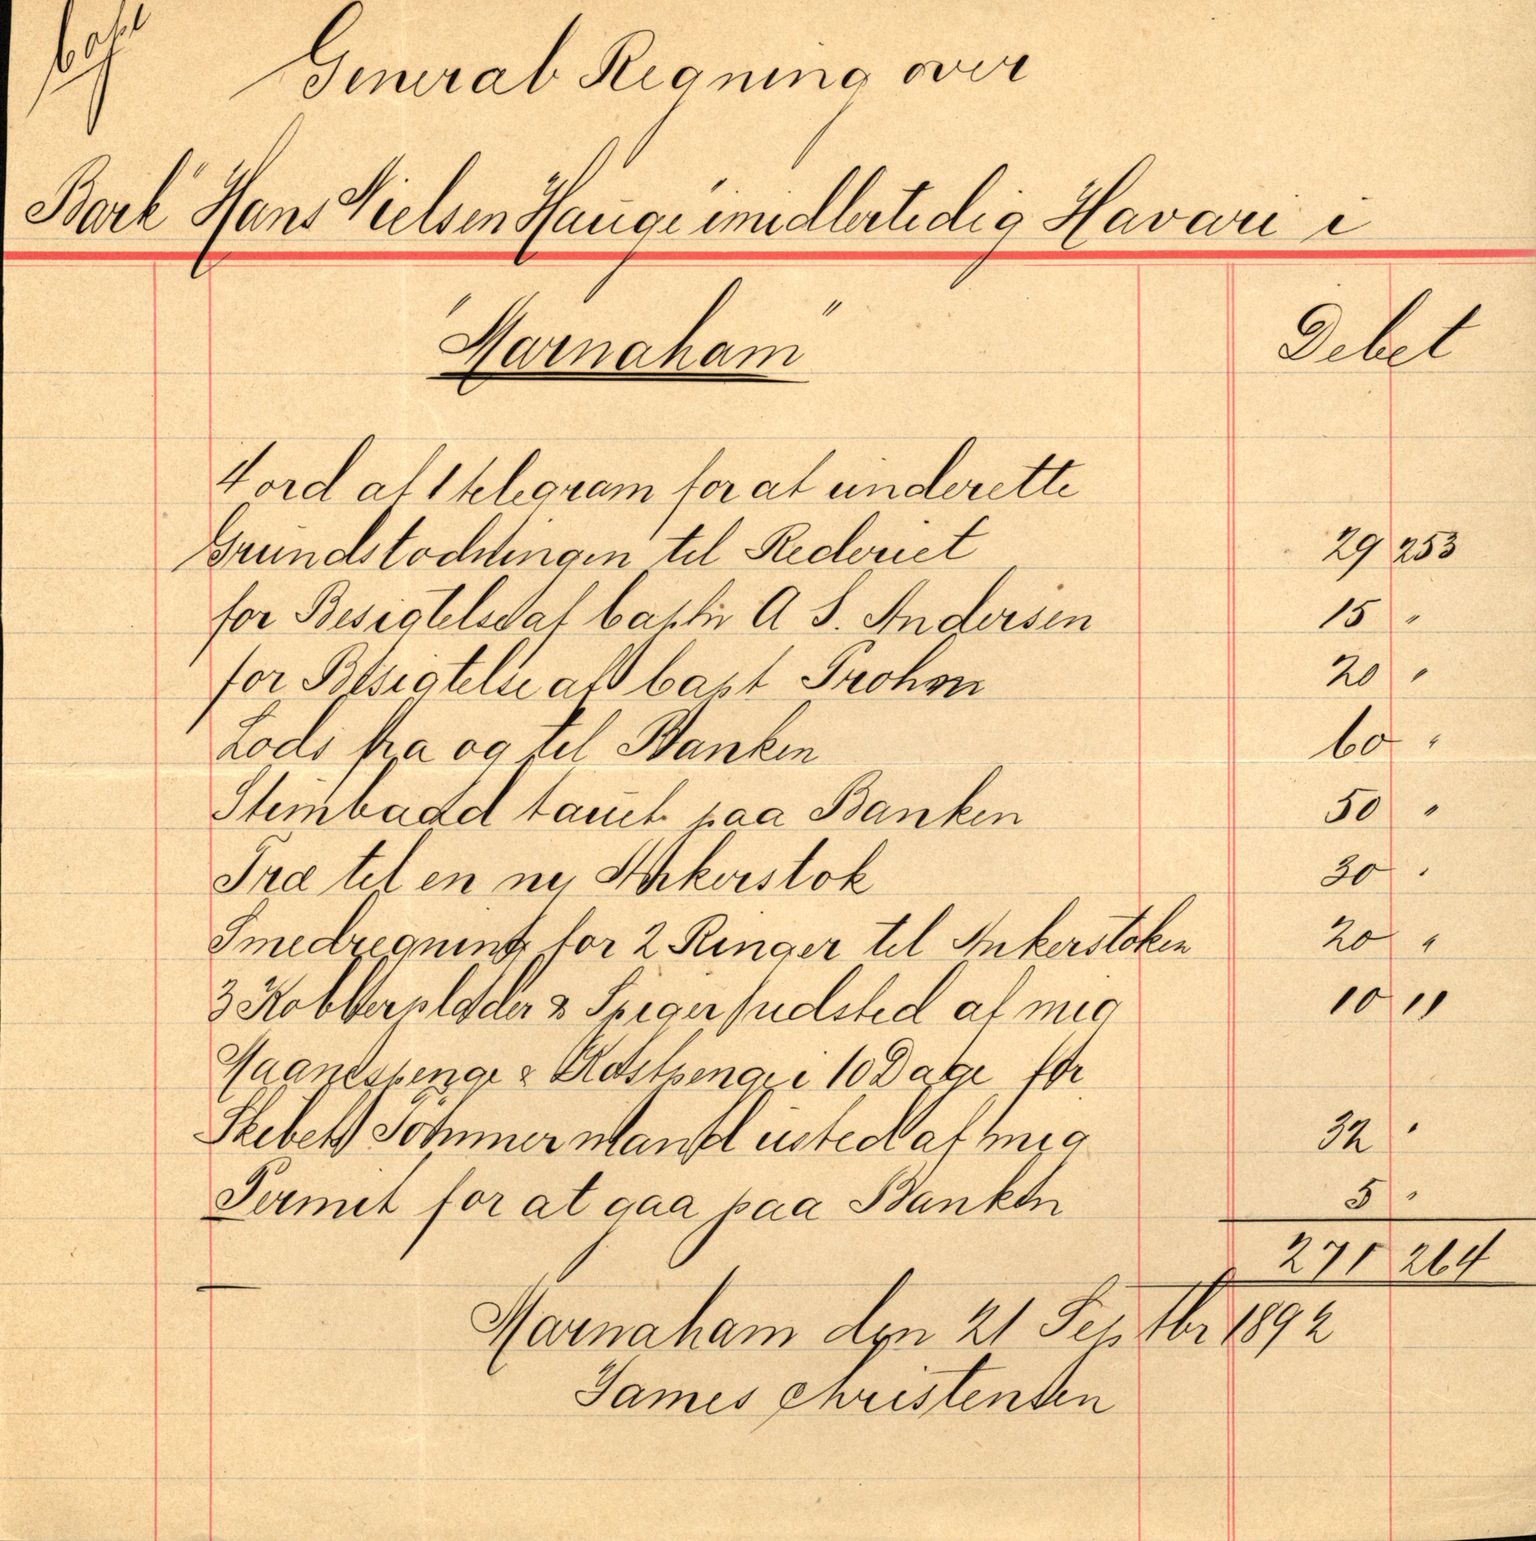 General Regning over
Bark "Hans Nielsen Hauge" imidlertidig Havari i
"Marnaham"
Debet
4 ord af 1 telegram for at underette
Grundstodningen til Rederiet 29 253
for Besigtelse af Capt A S. Andersen 15 "
for Besigtelse af Capt Prohm 20 "
Lods fra og til Banken 60 "
Stimbaad tauet paa Banken 50 "
Træ til en ny Ankerstok 30 "
Smedregning for 2 Ringer til Ankerstoken 20 "
3 Kobberplader & Spiger udsted af mig 10 11
Maanedspenge & Kostpenge i 10 Dage for
Skibets Tømmermand usted af mig 32 "
Permit for at gaa paa Banken 5 "
271 264
Marnaham den 21 Septbr 1892
James Christensen